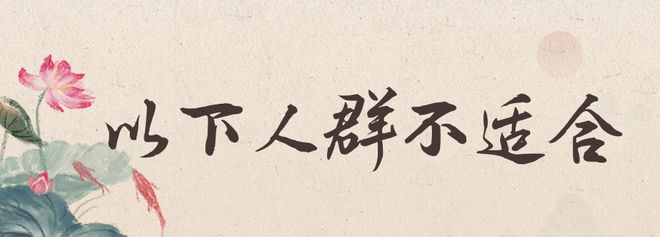 以下人群不适合